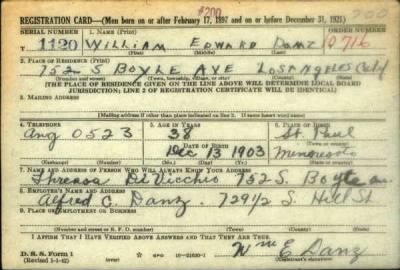 REGISTRATION CARD—(Men born on or after February 17, 1897 and on or before December 31, 1921)
SERIAL NUMBER 1. NAME (Print) ORDER NUMBER
1120 William Edward Danz 10716
2. PLACE OF RESIDENCE (Print)
752 S Boyle Ave Los Angeles Calif
(Number and street) (Town, township, village, or city) (County) (State)
(THE PLACE OF RESIDENCE GIVEN ON THE LINE ABOVE WILL DETERMINE LOCAL BOARD
JURISDICTION; LINE 2 OF REGISTRATION CERTIFICATE WILL BE IDENTICAL)
3. MAILING ADDRESS
(Mailing address if other than place indicated on line 2. If same insert word same)
4. TELEPHONE 5. AGE IN YEARS 6. PLACE OF BIRTH
Ang 0523 38 St. Paul
DATE OF BIRTH (Town or county)
Dec 13 1903 Minnesota
(Exchange) (Number) (Mo.) (Day) (Yr.) (State or country)
7. NAME AND ADDRESS OF PERSON WHO WILL ALWAYS KNOW YOUR ADDRESS
Theresa DiVicchio 752 S. Boyle av.
8. EMPLOYER'S NAME AND ADDRESS
Alfred C. Danz. 729½ S. Hill St
9. PLACE OF EMPLOYMENT OR BUSINESS
(Number and street or R. F. D. number) (Town) (County) (State)
I AFFIRM THAT I HAVE VERIFIED ABOVE ANSWERS AND THAT THEY ARE TRUE.
D. S. S. Form 1
(Revised 1-1-42) GPO 16—21630-1
Wm E Danz
(Registrant's signature)